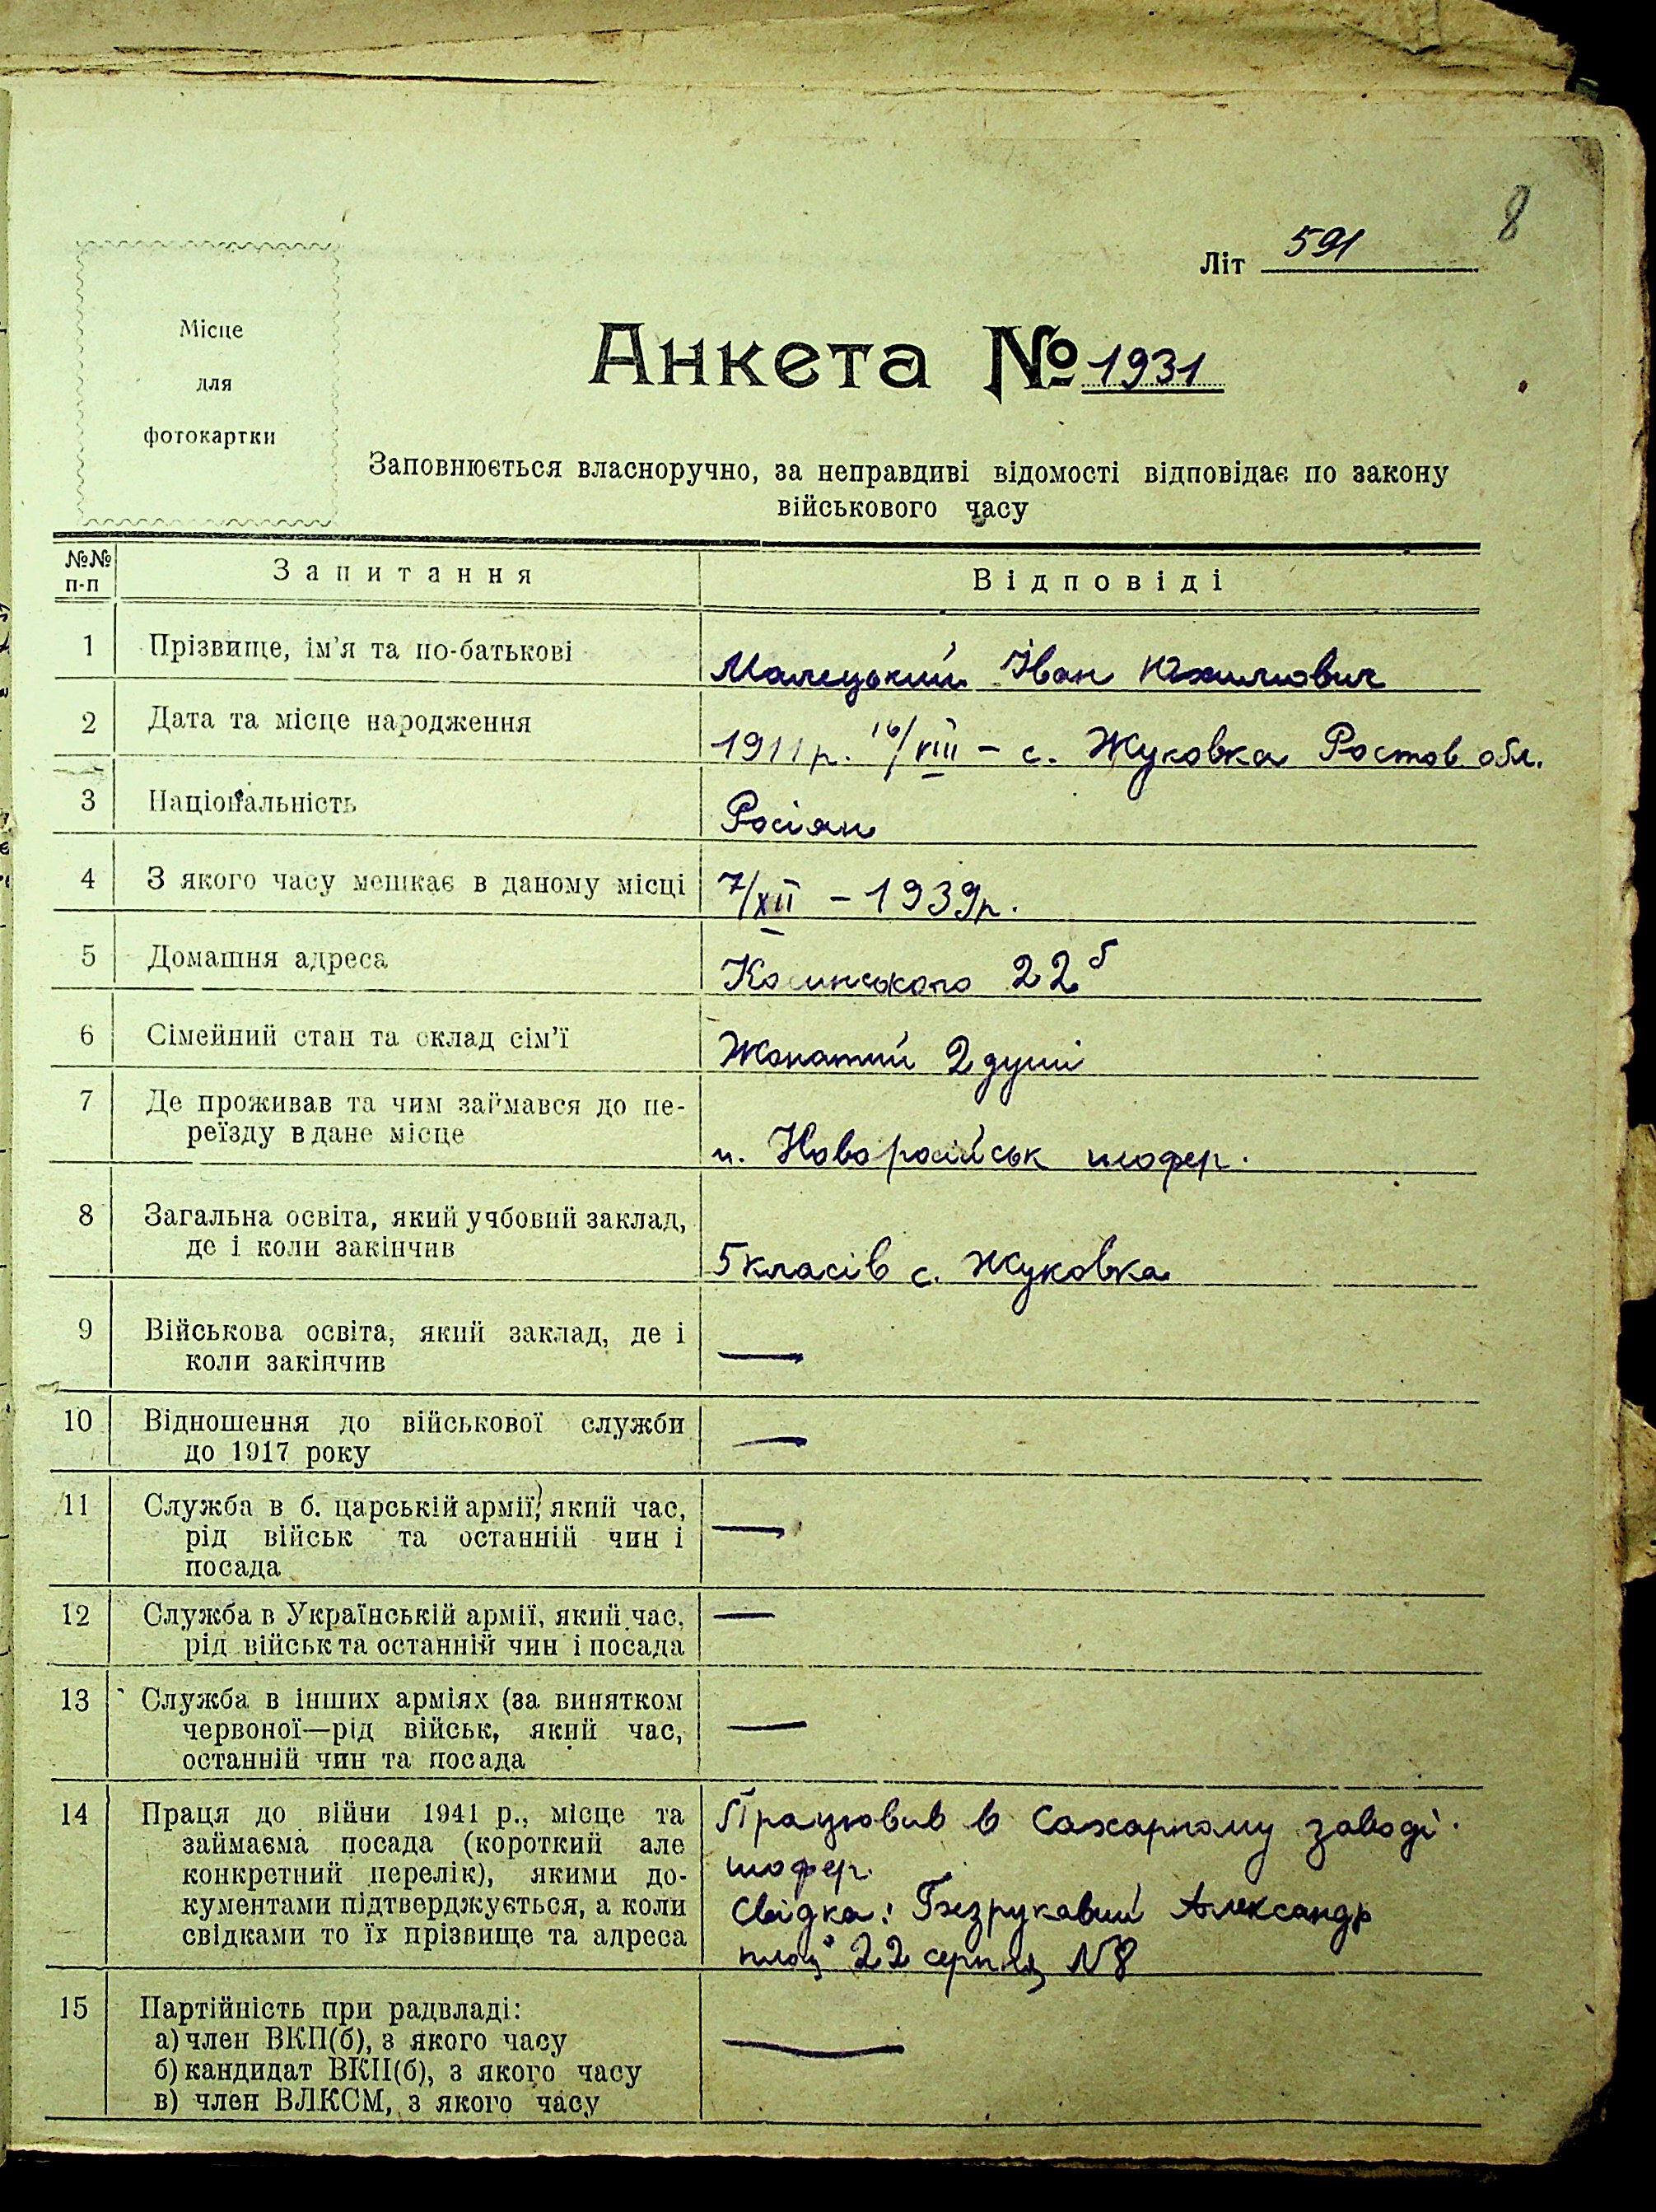 8
Літ 591
Місце
для
фотокартки
Анкета № 1931
Заповнюється власноручно, за неправдиві відомості відповідає по закону
військового часу
№№
п-п
Запитання
Відповіді
1 Прізвище, ім'я та по-батькові
Малецький Іван Юхимович
2 Дата та місце народження
1911 р. 16/VIII – с. Жуковка Ростов обл.
3 Національність
Росіян
4 З якого часу мешкає в даному місці
7/XII – 1939 р.
5 Домашня адреса
22б
6 Сімейний стан та склад сім'ї
Жонатий 2 душі
7 Де проживав та чим займався до пе-
реїзду в дане місце
м. Новоросійськ шофер.
8 Загальна освіта, який учбовий заклад,
де і коли закінчив
5 класів с. Жуковка
9 Військова освіта, який заклад, де і
коли закінчив
—
10 Відношення до військової служби
до 1917 року
—
11 Служба в б. царській армії, який час,
рід військ та останній чин і
посада
—
12 Служба в Українській армії, який час,
рід військ та останній чин і посада
—
13 Служба в інших арміях (за винятком
червоної—рід військ, який час,
останній чин та посада
—
14 Праця до війни 1941 р., місце та
займаєма посада (короткий але
конкретний перелік), якими до-
кументами підтверджується, а коли
свідками то їх прізвище та адреса
Працював в Сахарному заводі.
шофер.
Свідка: Безрукавий Александр
площ 22 серпня N8
15 Партійність при радвладі:
а) член ВКП(б), з якого часу
б) кандидат ВКП(б), з якого часу
в) член ВЛКСМ, з якого часу
—